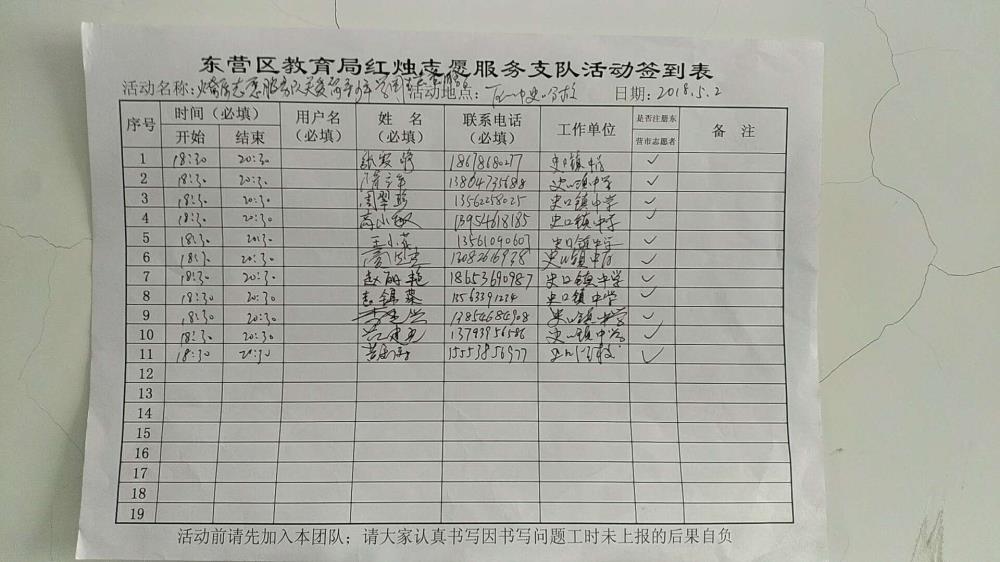 东营区教育局红烛志愿服务支队活动签到表
活动名称: 活动地点: 日期: 2018.5.2
序号 时间（必填） 用户名（必填） 姓 名（必填） 联系电话（必填） 工作单位 是否注册东营市志愿者 备 注
开始 结束
1 18:30 20:30 18678680277 史口镇中学 ✓
2 18:30 20:30 13804735688 史口镇中学 ✓
3 18:30 20:30 周翠彩 13562258025 史口镇中学 ✓
4 18:30 20:30 高小敏 13954618185 史口镇中学 ✓
5 18:30 20:30 王小燕 13561090607 史口镇中学 ✓
6 18:30 20:30 史口镇中学 ✓
7 18:30 20:30 赵丽艳 18653690987 史口镇中学 ✓
8 18:30 20:30 史口镇中学 ✓
9 18:30 20:30 13854684908 史口镇中学 ✓
10 18:30 20:30 13793956586 史口镇中学 ✓
11 18:30 20:30 15553856977 ✓
12
13
14
15
16
17
18
19
活动前请先加入本团队；请大家认真书写因书写问题工时未上报的后果自负